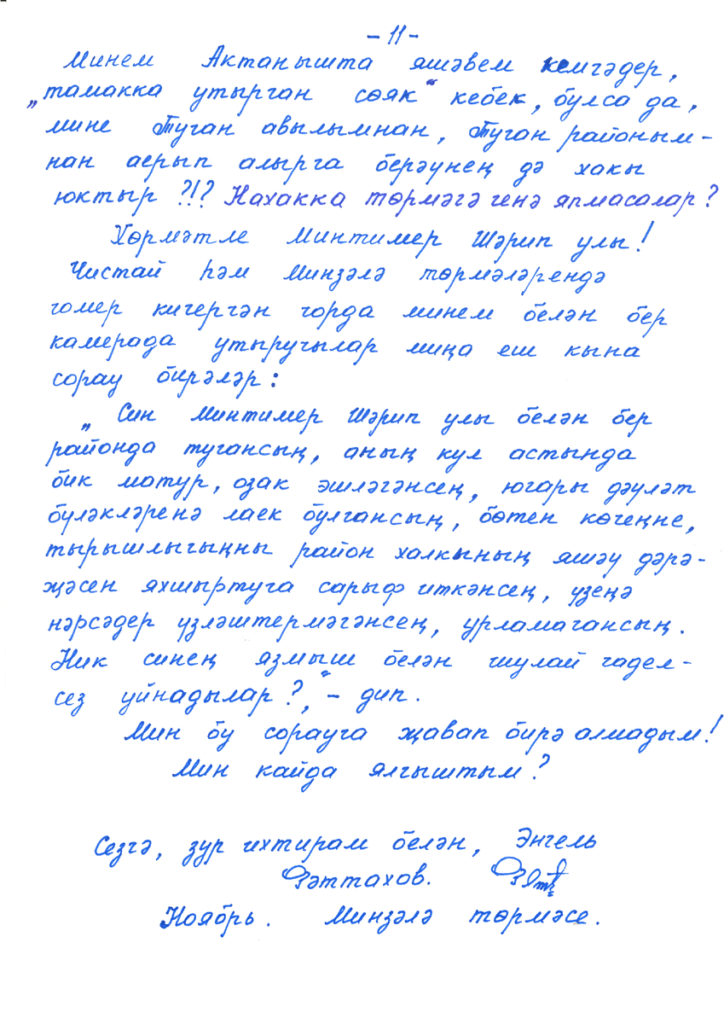 - 11 -
Минем Актанышта яшәвем кемгәдер,
„тамакка утырган сөяк“ кебек, булса да,
мине Туган авылымнан, Туган районым-
нан аерып алырга берәүнең дә хакы
юктыр ?!? Нахакка төрмәгә генә япмасалар?
Хөрмәтле Минтимер Шәрип улы!
Чистай һәм Минзәлә төрмәләрендә
гомер кичергән чорда минем белән бер
камерада утыручылар миңа еш кына
сорау бирәләр:
„Син Минтимер Шәрип улы белән бер
районда тугансың, аның кул астында
бик матур, озак эшләгәнсең, югары дәүләт
бүләкләренә лаек булгансың, бөтен көчеңне,
тырышлыгыңны район халкының яшәү дәрә-
җәсен яхшыртуга сарыф иткәнсең, үзеңә
нәрсәдер үзләштермәгәнсең, урламагансың.
Ник синең язмыш белән шулай гадел-
сез уйнадылар?“, - дип.
Мин бу сорауга җавап бирә алмадым!
Мин кайда ялгыштым?
Сезгә, зур ихтирам белән, Энгель
Фәттахов.
Ноябрь. Минзәлә төрмәсе.